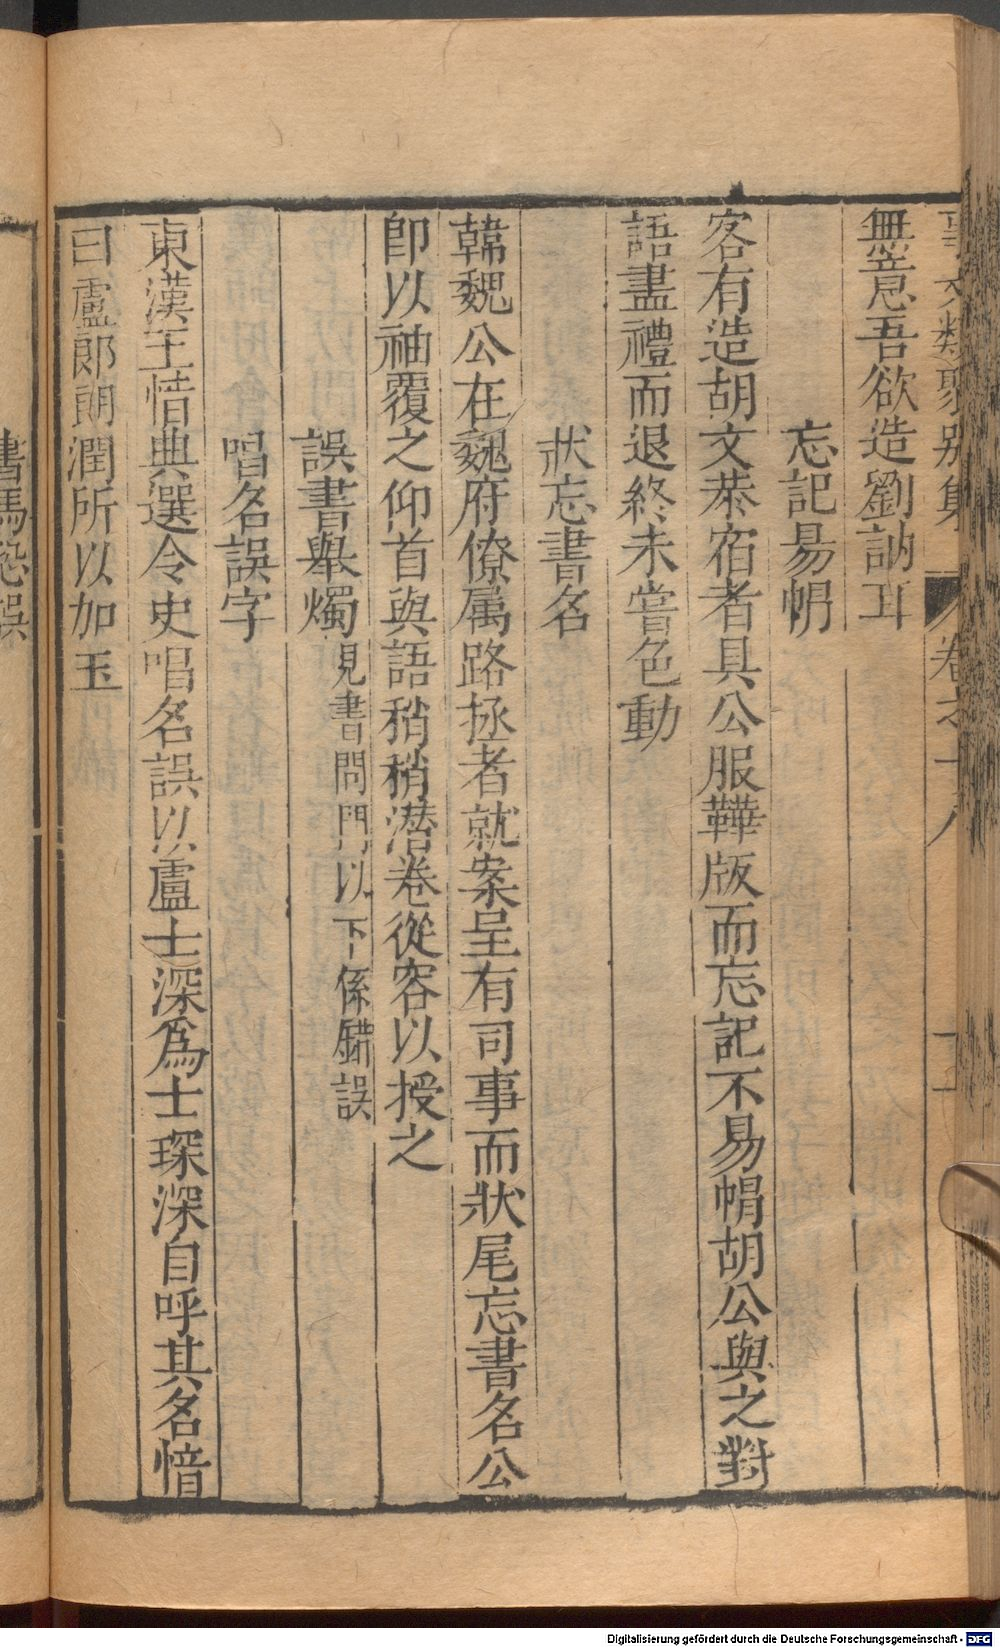 事文類聚別集 卷之十八 十
無意吾欲造劉訥耳
忘記易帽
客有造胡文恭宿者具公服鞾版而忘記不易帽胡公與之對
語盡禮而退終未嘗色動
狀忘書名
韓魏公在魏府僚属路拯者就案呈有司事而狀尾忘書名公
卽以袖覆之仰首與語稍稍潛卷從容以授之
誤書舉燭見書問門以下係錯誤
唱名誤字
東漢王愔典選令史唱名誤以盧士深爲士琛深自呼其名愔
曰盧郎朗潤所以加玉
書馬恐誤
Digitalisierung gefördert durch die Deutsche Forschungsgemeinschaft - DFG